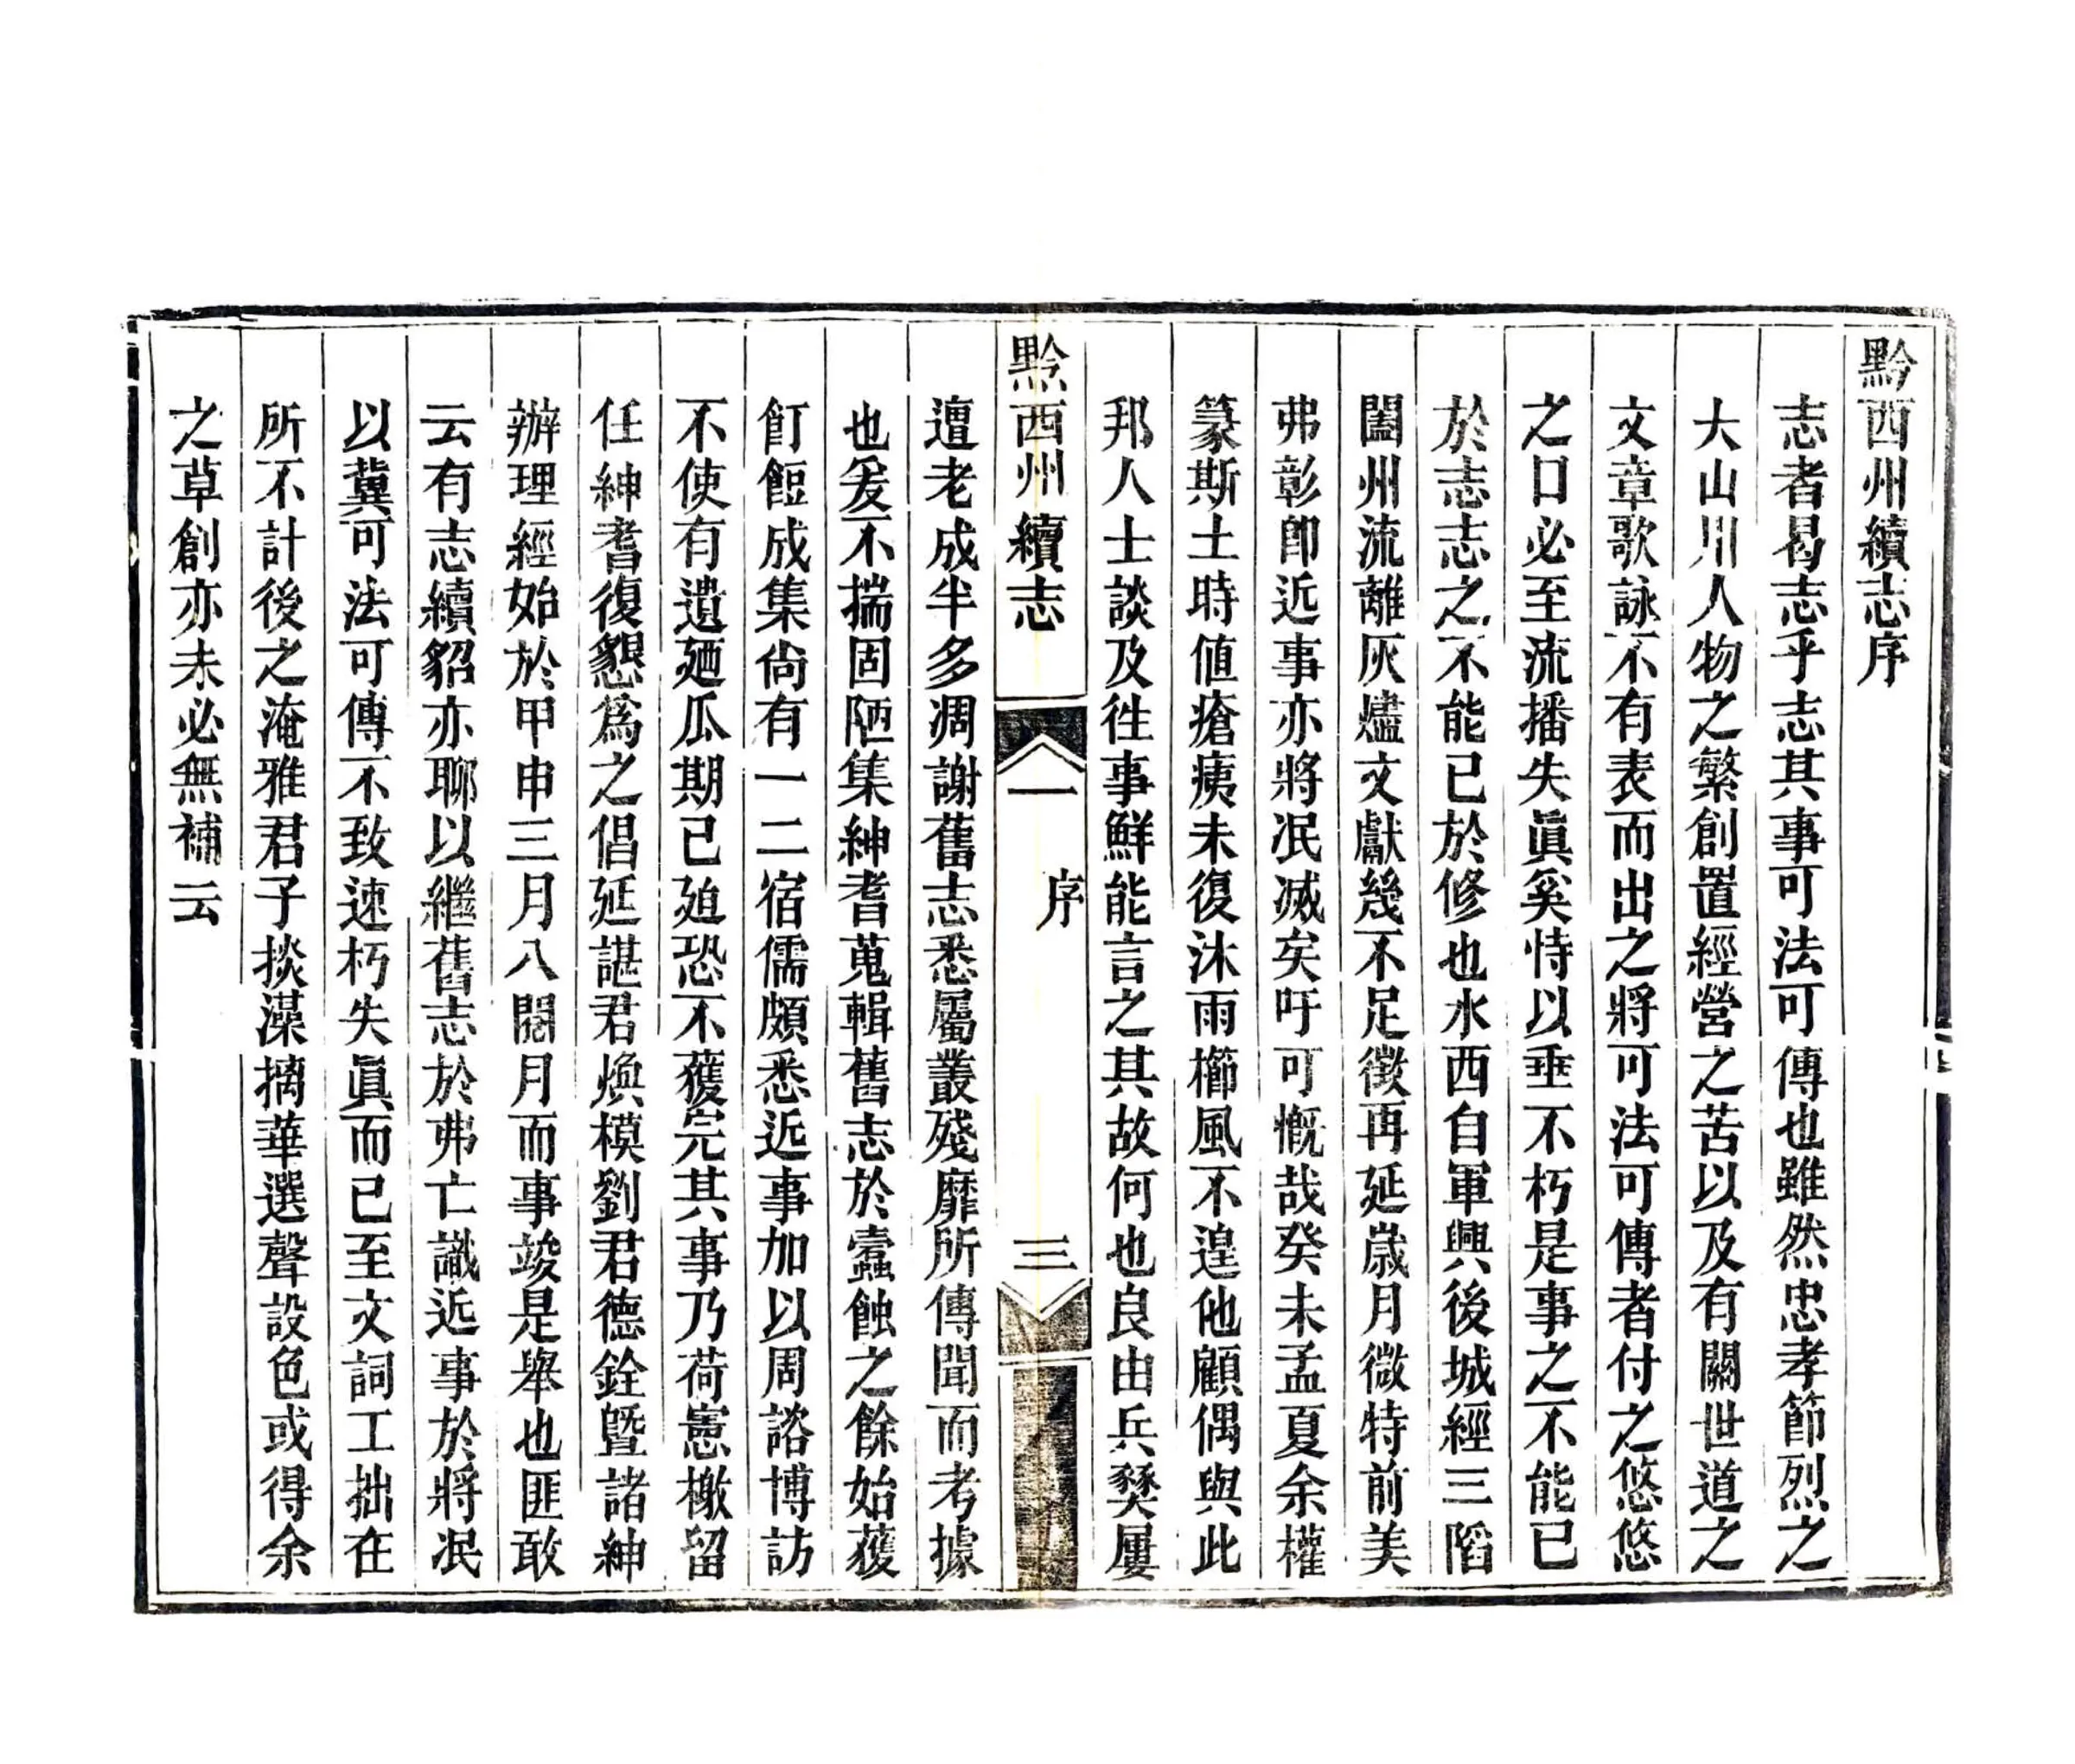 黔西州續志序
志者曷志乎志其事可法可傳也雖然忠孝節烈之
大山川人物之繁創置經營之苦以及有關世道之
文章歌詠不有表而出之將可法可傳者付之悠悠
之口必至流播失眞奚恃以垂不朽是事之不能已
於志志之不能已於修也水西自軍興後城經三陷
闔州流離灰燼文獻幾不足徵再延歲月微特前美
弗彰卽近事亦將冺滅矣吁可慨哉癸未孟夏余權
篆斯土時值瘡痍未復沐雨櫛風不遑他顧偶與此
邦人士談及徃事鮮能言之其故何也良由兵燹屢
黔西州續志
卷一
序
三
遭老成半多凋謝舊志悉屬叢殘靡所傳聞而考據
也爰不揣固陋集紳耆蒐輯舊志於蠹蝕之餘始獲
飣餖成集尙有一二宿儒頗悉近事加以周諮博訪
不使有遺廼瓜期已廹恐不獲完其事乃荷憲檄留
任紳耆復懇爲之倡延諶君煥模劉君德銓曁諸紳
辦理經始於甲申三月八閱月而事竣是舉也匪敢
云有志續貂亦聊以繼舊志於弗亡識近事於將冺
以冀可法可傳不致速朽失眞而已至文詞工拙在
所不計後之淹雅君子掞藻摛華選聲設色或得余
之草創亦未必無補云